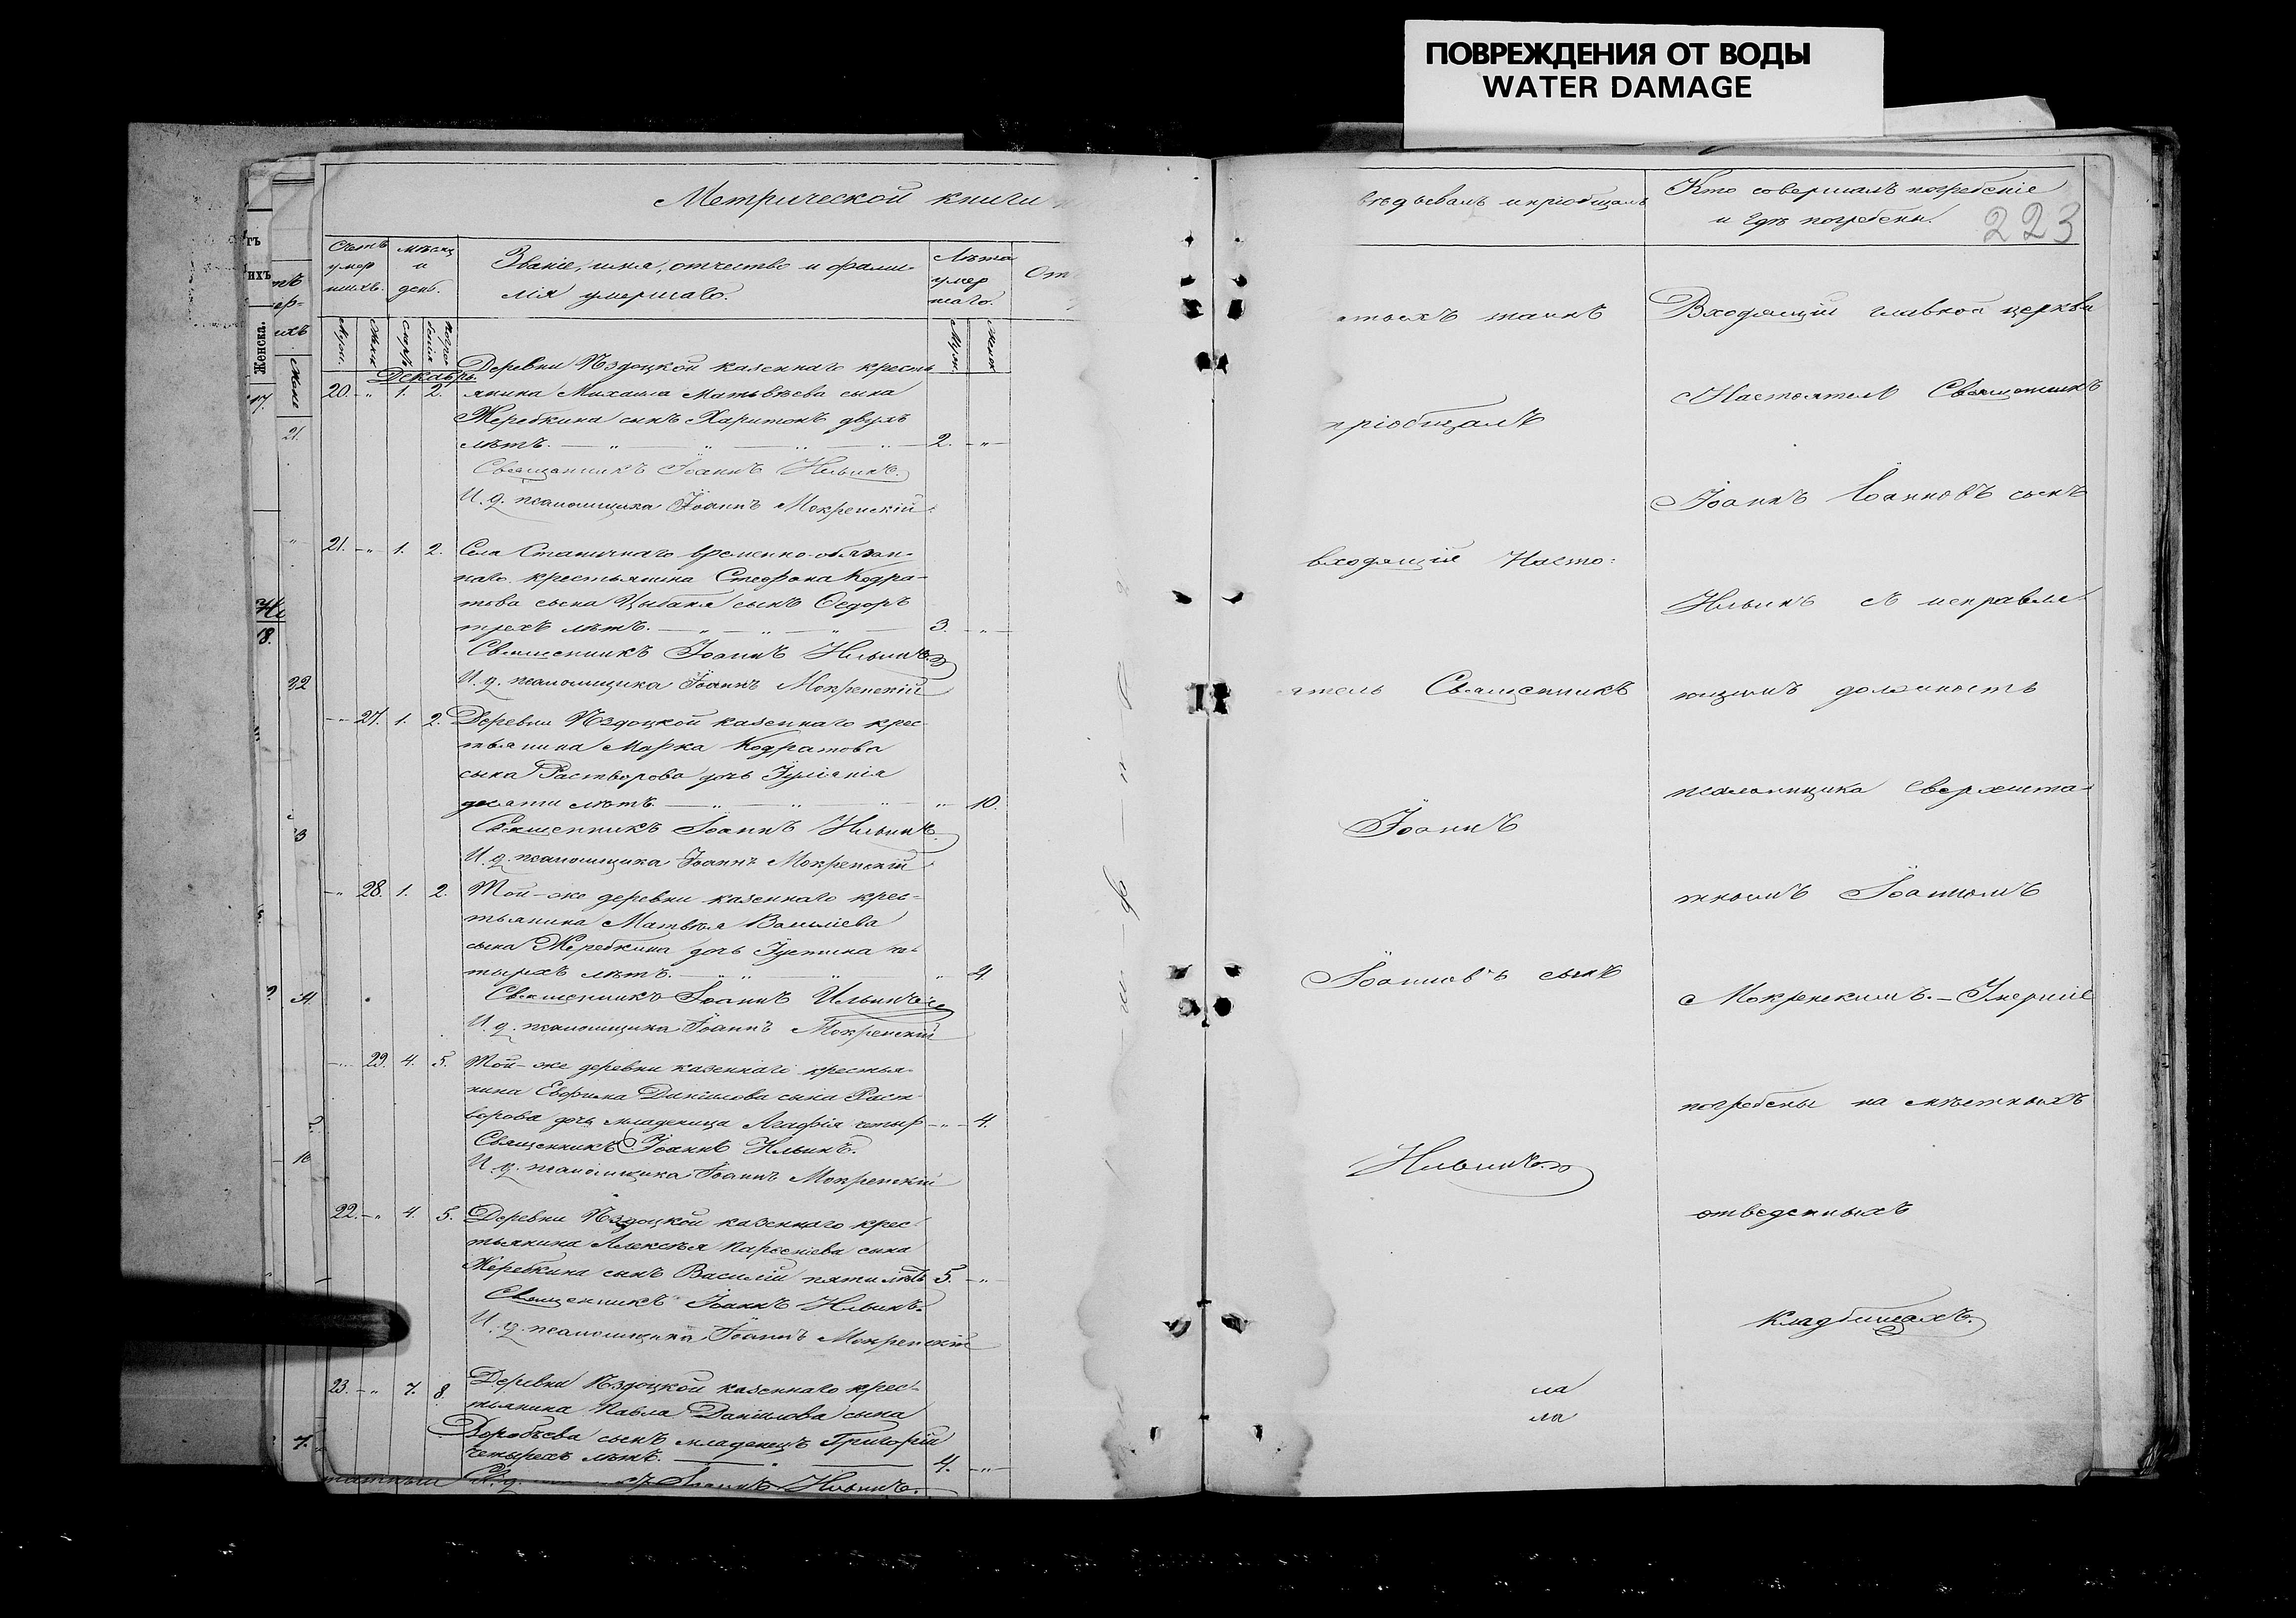 ПОВРЕЖДЕНИЯ ОТ ВОДЫ
WATER DAMAGE
Метрической книги
Счетъ умершихъ.
Мѣсяцъ и день.
Званіе, имя, отчество и фамилія умершаго.
Лѣта умершаго.
От
Муж.
Женск.
Декабрь.
20. " 1. 2. Деревни Пздоцкой казеннаго кресть
янина Михаила Матвѣева сына
Жеребкина сынъ Харитонъ двухъ
лѣтъ. 2. "
Священникъ Іоаннъ Ильинъ.
И. д. псаломщика Іоаннъ Мокренскій
21. " 1. 2. Села Статичнаго временно-обязан-
наго крестьянина Стефана Кодра-
това сына Цыбаня сынъ Ѳедоръ
трехъ лѣтъ. 3. "
Священникъ Іоаннъ Ильинъ
И. д. псаломщика Іоаннъ Мокренскій
" 27. 1. 2. Деревни Пздоцкой казеннаго крес-
тьянина Марка Кодратова
сына Растворова дочь Іуліанія
десяти лѣтъ. " 10.
Священникъ Іоаннъ Ильинъ
И. д. псаломщика Іоаннъ Мокренскій
" 28. 1. 2. Той-же деревни казеннаго крес-
тьянина Матвѣя Василіева
сына Жеребкина дочь Іустина че-
тырехъ лѣтъ. " 4
Священникъ Іоаннъ Ильинъ
И. д. псаломщика Іоаннъ Мокренскій
" 29. 4. 5. Той-же деревни казеннаго крестья-
нина Евфима Даніилова сына Раст-
ворова дочь младеница Агафія четыр " 4.
Священникъ Іоаннъ Ильинъ.
И. д. псаломщика Іоаннъ Мокренскій
22. " 4. 5. Деревни Пздоцкой казеннаго крес-
тьянина Алексѣя Парѳеніева сына
Жеребкина сынъ Василій пяти лѣтъ 5. "
Священникъ Іоаннъ Ильинъ.
И. д. псаломщика Іоаннъ Мокренскій
23. " 7. 8. Деревни Пздоцкой казеннаго крес-
тьянина Павла Даніилова сына
Воробьева сынъ младенецъ Григорій
четырехъ лѣтъ. 4. "
Іоаннъ Ильинъ.
вѣдывалъ и пріобщалъ
тыхъ таинъ
пріобщалъ
входящій Насто:
ятель Священникъ
Іоаннъ
Іоанновъ сынъ
Ильинъ
ла
ла
Кто совершалъ погребеніе
и гдѣ погребены.
223
Входящій главной церкви
Настоятель Священникъ
Іоаннъ Іоанновъ сынъ
Ильинъ съ исправля-
ющимъ должность
псаломщика сверхшта-
тнымъ Іоанномъ
Мокренскимъ. – Умершіе
погребены на мѣстныхъ
отведенныхъ
кладбищахъ.